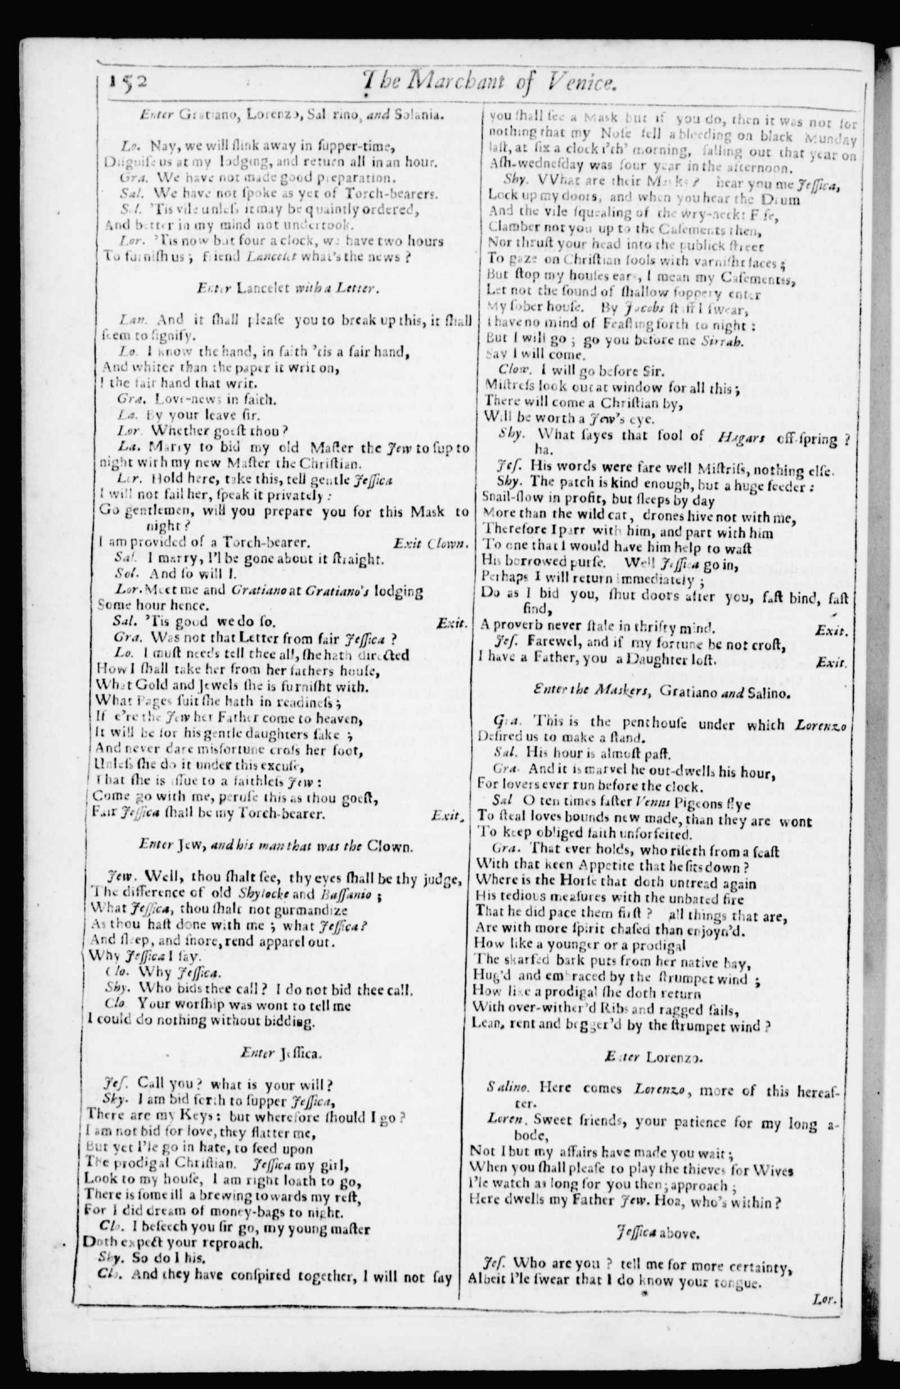 152
The Marchant of Venice.
Enter Gratiano, Lorenzo, Sal rino, and Solania.
Lo. Nay, we will ſlink away in ſupper-time,
Diſguiſe us at my lodging, and return all in an hour.
Gra. We have not made good preparation.
Sal. We have not ſpoke as yet of Torch-bearers.
Sol. 'Tis vile unleſs it may be quaintly ordered,
And better in my mind not undertook.
Lor. 'Tis now but four a clock, we have two hours
To furniſh us; friend Lancelet what's the news?
Enter Lancelet with a Letter.
Lan. And it ſhall pleaſe you to break up this, it ſhall
ſeem to ſignify.
Lo. I know the hand, in faith 'tis a fair hand,
And whiter than the paper it writ on,
I the fair hand that writ.
Gra. Love-news in faith.
La. By your leave ſir.
Lor. Whether goeſt thou?
La. Marry to bid my old Maſter the Jew to ſup to
night with my new Maſter the Chriſtian.
Lor. Hold here, take this, tell gentle Jeſſica
I will not fail her, ſpeak it privately:
Go gentlemen, will you prepare you for this Mask to
night?
I am provided of a Torch-bearer. Exit Clown.
Sal. I marry, I'l be gone about it ſtraight.
Sol. And ſo will I.
Lor. Meet me and Gratiano at Gratiano's lodging
Some hour hence.
Sal. 'Tis good we do ſo. Exit.
Gra. Was not that Letter from fair Jeſſica?
Lo. I muſt needs tell thee all, ſhe hath directed
How I ſhall take her from her fathers houſe,
What Gold and Jewels ſhe is furniſht with.
What Pages ſuit ſhe hath in readineſs;
If e're the Jew her Father come to heaven,
It will be for his gentle daughters ſake;
And never dare misfortune croſs her foot,
Unleſs ſhe do it under this excuſe,
That ſhe is iſſue to a faithleſs Jew:
Come go with me, peruſe this as thou goeſt,
Fair Jeſſica ſhall be my Torch-bearer. Exit.
Enter Jew, and his man that was the Clown.
Jew. Well, thou ſhalt ſee, thy eyes ſhall be thy judge,
The difference of old Shylocke and Baſſanio;
What Jeſſica, thou ſhalt not gurmandize
As thou haſt done with me; what Jeſſica?
And ſleep, and ſnore, rend apparel out.
Why Jeſſica I ſay.
Clo. Why Jeſſica.
Shy. Who bids thee call? I do not bid thee call.
Clo. Your worſhip was wont to tell me
I could do nothing without bidding.
Enter Jeſſica.
Jeſ. Call you? what is your will?
Shy. I am bid forth to ſupper Jeſſica,
There are my Keys: but wherefore ſhould I go?
I am not bid for love, they flatter me,
But yet I'le go in hate, to feed upon
The prodigal Chriſtian. Jeſſica my girl,
Look to my houſe, I am right loath to go,
There is ſome ill a brewing towards my reſt,
For I did dream of money-bags to night.
Clo. I beſeech you ſir go, my young maſter
Doth expect your reproach.
Shy. So do I his.
Clo. And they have conſpired together, I will not ſay
you ſhall ſee a Mask but if you do, then it was not for
nothing that my Noſe fell a bleeding on black Munday
laſt, at ſix a clock i'th' morning, falling out that year on
Aſh-wedneſday was four year in the afternoon.
Shy. VVhat are their Masks? hear you me Jeſſica,
Lock up my doors, and when you hear the Drum
And the vile ſquealing of the wry-neckt Fife,
Clamber not you up to the Caſements then,
Nor thruſt your head into the publick ſtreet
To gaze on Chriſtian fools with varniſht faces;
But ſtop my houſes ears, I mean my Caſements,
Let not the ſound of ſhallow foppery enter
My ſober houſe. By Jacobs ſtaff I ſwear,
I have no mind of Feaſting forth to night:
But I will go; go you before me Sirrah.
Say I will come.
Clow. I will go before Sir.
Miſtreſs look out at window for all this;
There will come a Chriſtian by,
Will be worth a Jew's eye.
Shy. What ſayes that fool of Hagars off-ſpring?
ha.
Jeſ. His words were fare well Miſtriſs, nothing elſe.
Shy. The patch is kind enough, but a huge feeder:
Snail-ſlow in profit, but ſleeps by day
More than the wild cat, drones hive not with me,
Therefore I part with him, and part with him
To one that I would have him help to waſt
His borrowed purſe. Well Jeſſica go in,
Perhaps I will return immediately;
Do as I bid you, ſhut doors after you, faſt bind, faſt
find,
A proverb never ſtale in thrifty mind. Exit.
Jeſ. Farewel, and if my fortune be not croſt,
I have a Father, you a Daughter loſt. Exit.
Enter the Maskers, Gratiano and Salino.
Gra. This is the penthouſe under which Lorenzo
Deſired us to make a ſtand.
Sal. His hour is almoſt paſt.
Gra. And it is marvel he out-dwells his hour,
For lovers ever run before the clock.
Sal O ten times faſter Venus Pigeons flye
To ſteal loves bounds new made, than they are wont
To keep obliged faith unforfeited.
Gra. That ever holds, who riſeth from a feaſt
With that keen Appetite that he ſits down?
Where is the Horſe that doth untread again
His tedious meaſures with the unbated fire
That he did pace them firſt? all things that are,
Are with more ſpirit chaſed than enjoyn'd.
How like a younger or a prodigal
The skarfed bark puts from her native bay,
Hug'd and embraced by the ſtrumpet wind;
How like a prodigal ſhe doth return
With over-wither'd Ribs and ragged ſails,
Lean, rent and begger'd by the ſtrumpet wind?
Enter Lorenzo.
Salino. Here comes Lorenzo, more of this hereaf-
ter.
Loren. Sweet friends, your patience for my long a-
bode,
Not I but my affairs have made you wait;
When you ſhall pleaſe to play the thieves for Wives
I'le watch as long for you then; approach;
Here dwells my Father Jew. Hoa, who's within?
Jeſſica above.
Jeſ. Who are you? tell me for more certainty,
Albeit I'le ſwear that I do know your tongue.
Lor.